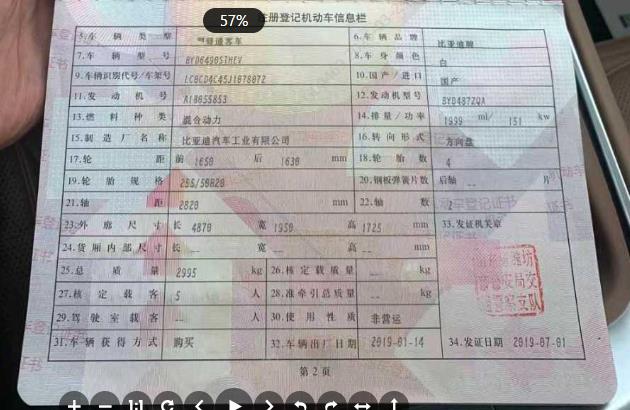 57%
注册登记机动车信息栏
5.车辆类型 普通客车 6.车辆品牌 比亚迪牌
7.车辆型号 BYD6490STHEV 8.车身颜色 白
9.车辆识别代号/车架号 10.国产/进口 国产
11.发动机号 12.发动机型号 BYD487ZQA
13.燃料种类 混合动力 14.排量/功率 1999 ml/ 151 kw
15.制造厂名称 比亚迪汽车工业有限公司 16.转向形式 方向盘
17.轮距 前 1650 后 1630 mm 18.轮胎数 4
19.轮胎规格 255/50R20 20.钢板弹簧片数 后轴 -- 片
21.轴距 2820 mm 22.轴数 2
23.外廓尺寸 长 4870 宽 1950 高 1725 mm 33.发证机关章
24.货厢内部尺寸 长 -- 宽 -- 高 -- mm
25.总质量 2995 kg 26.核定载质量 -- kg
27.核定载客 5 人 28.准牵引总质量 -- kg
29.驾驶室载客 -- 人 30.使用性质 非营运
31.车辆获得方式 购买 32.车辆出厂日期 2019-01-14 34.发证日期 2019-07-01
第2页